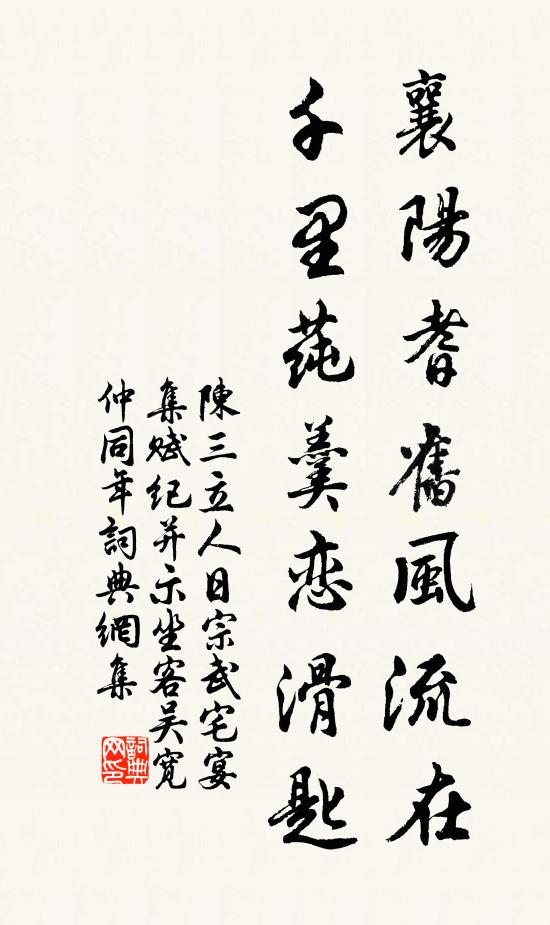 襄陽耆舊風流在
千里蒓羹恋滑匙
陳三立人日宗武宅宴
集賦纪并示坐客吴寛
仲同年詞典網集
詞典网印